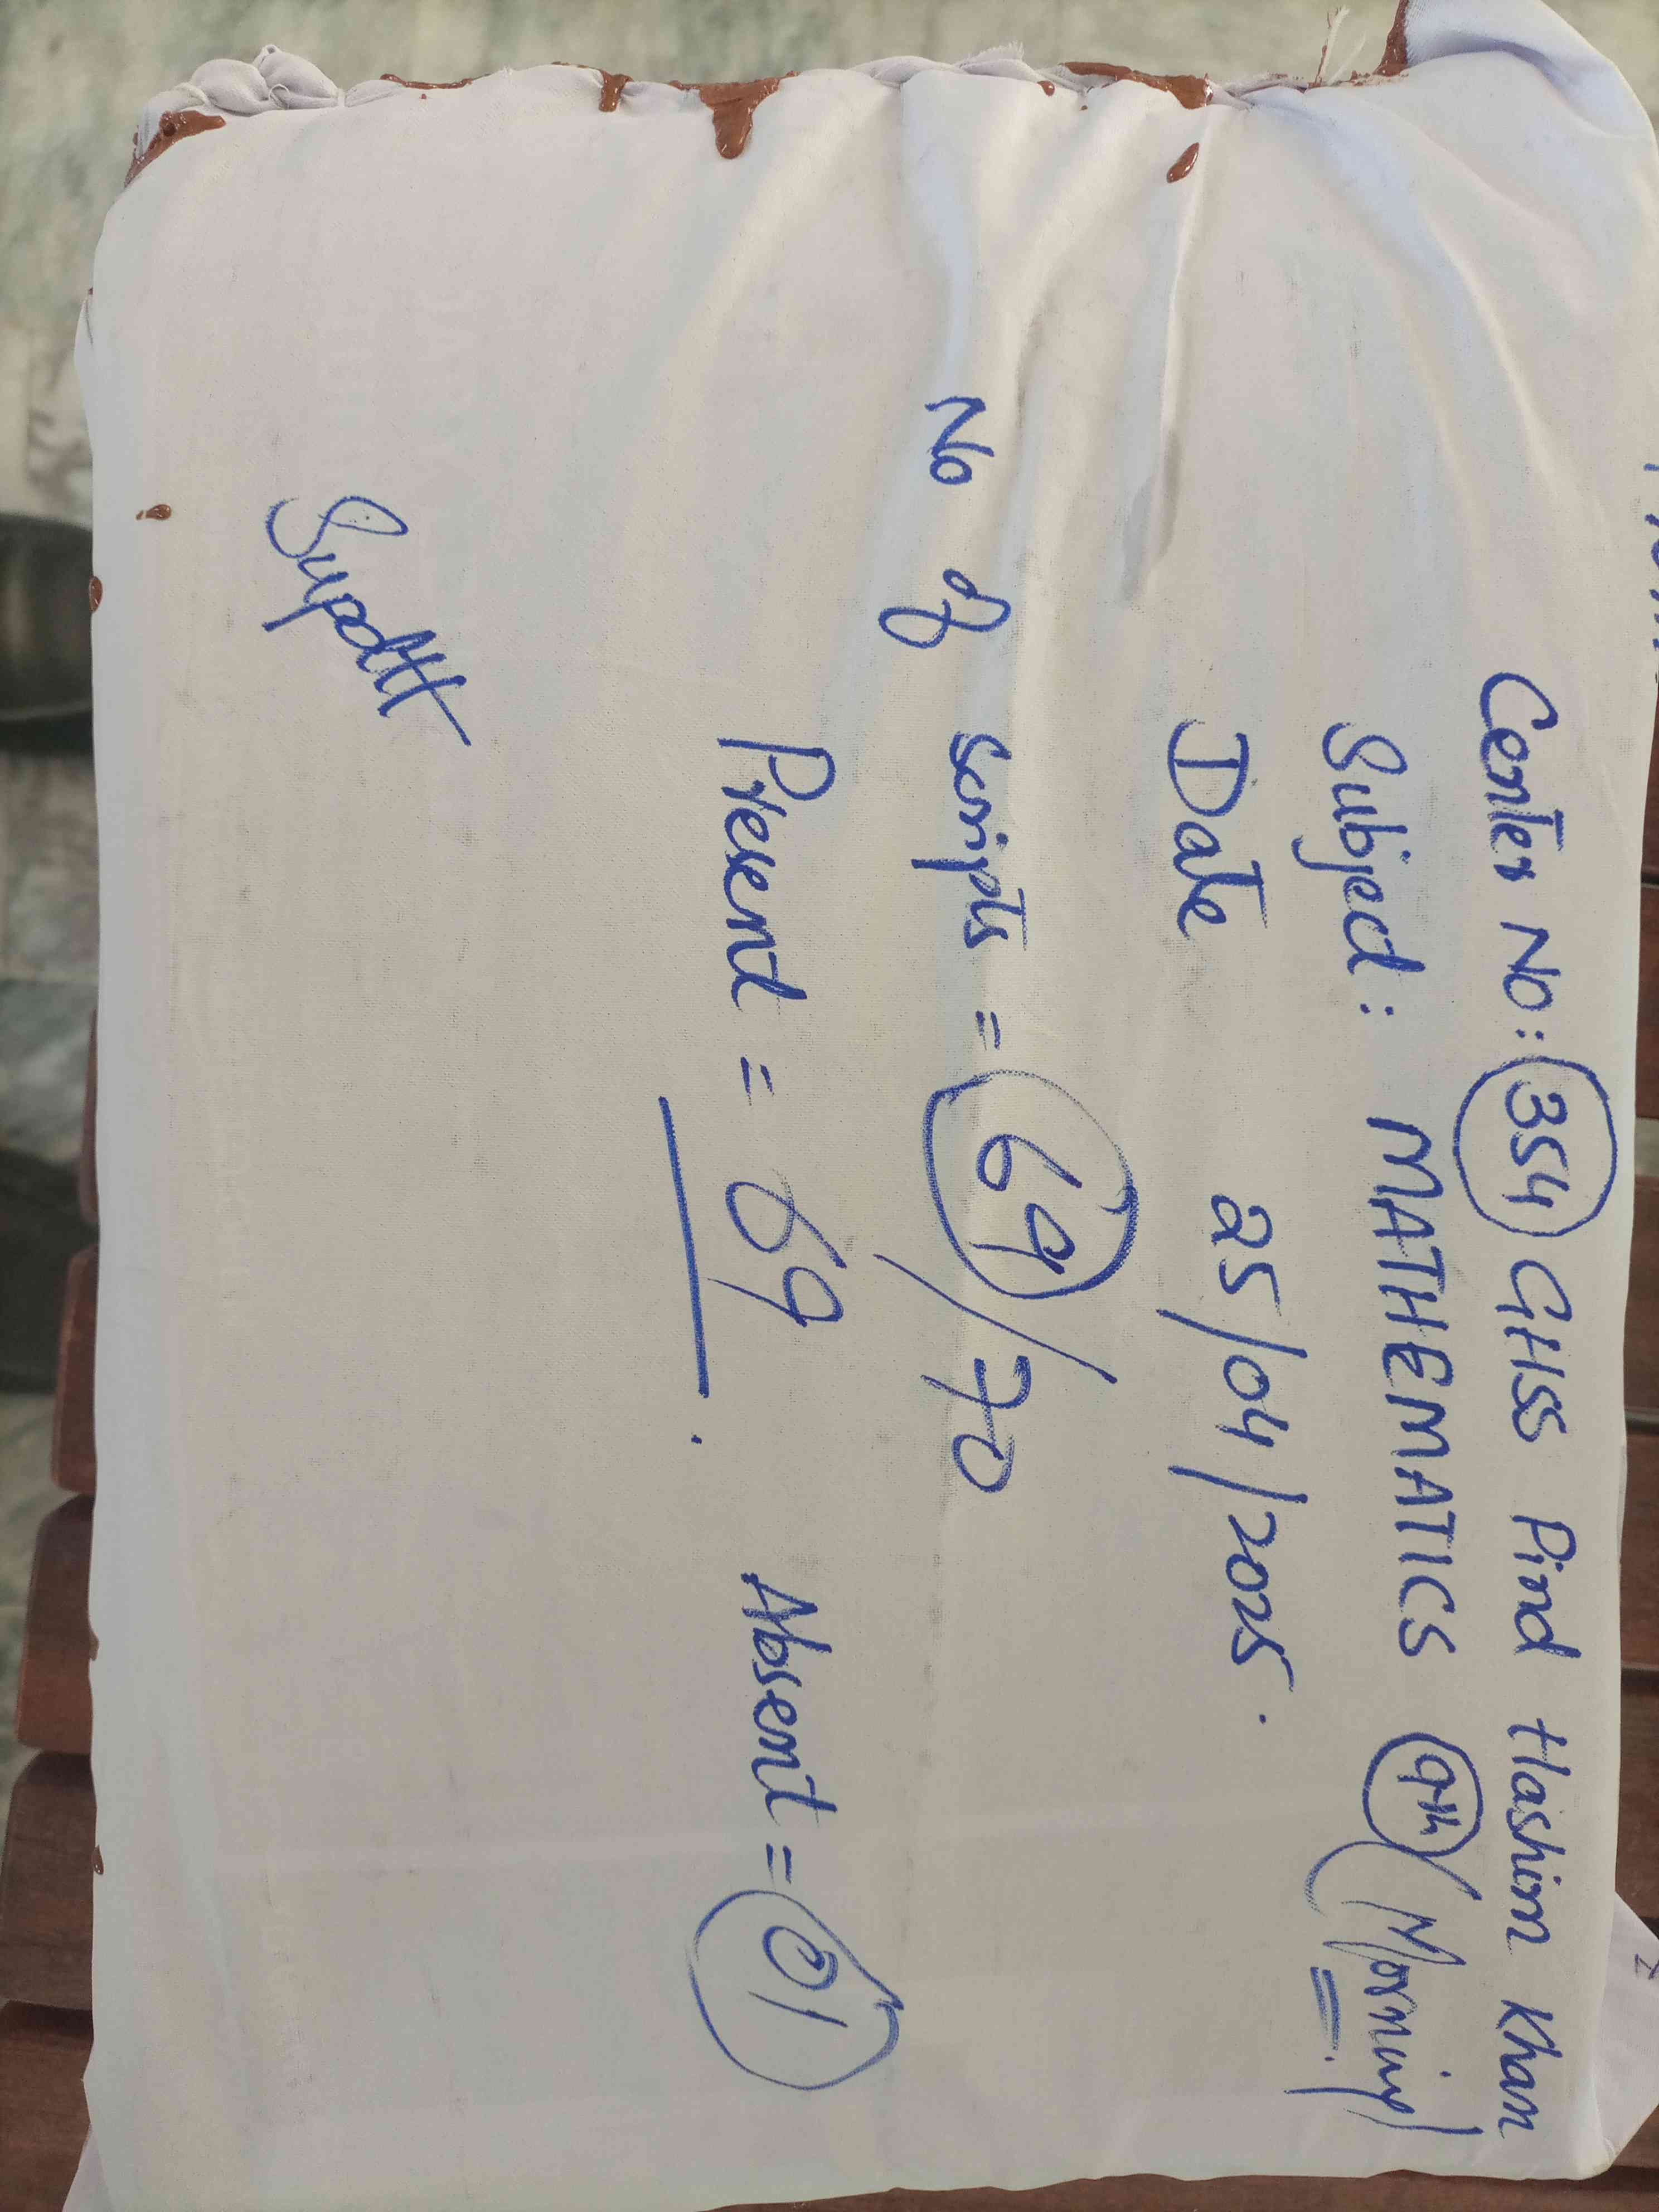 Center No: 354 GHSS Pind Hashim Khan
Subject: MATHEMATICS 9th (Morning)
Date 25/04/2025.
No of scripts = 69/70
Present = 69. Absent = 01
Supdtt